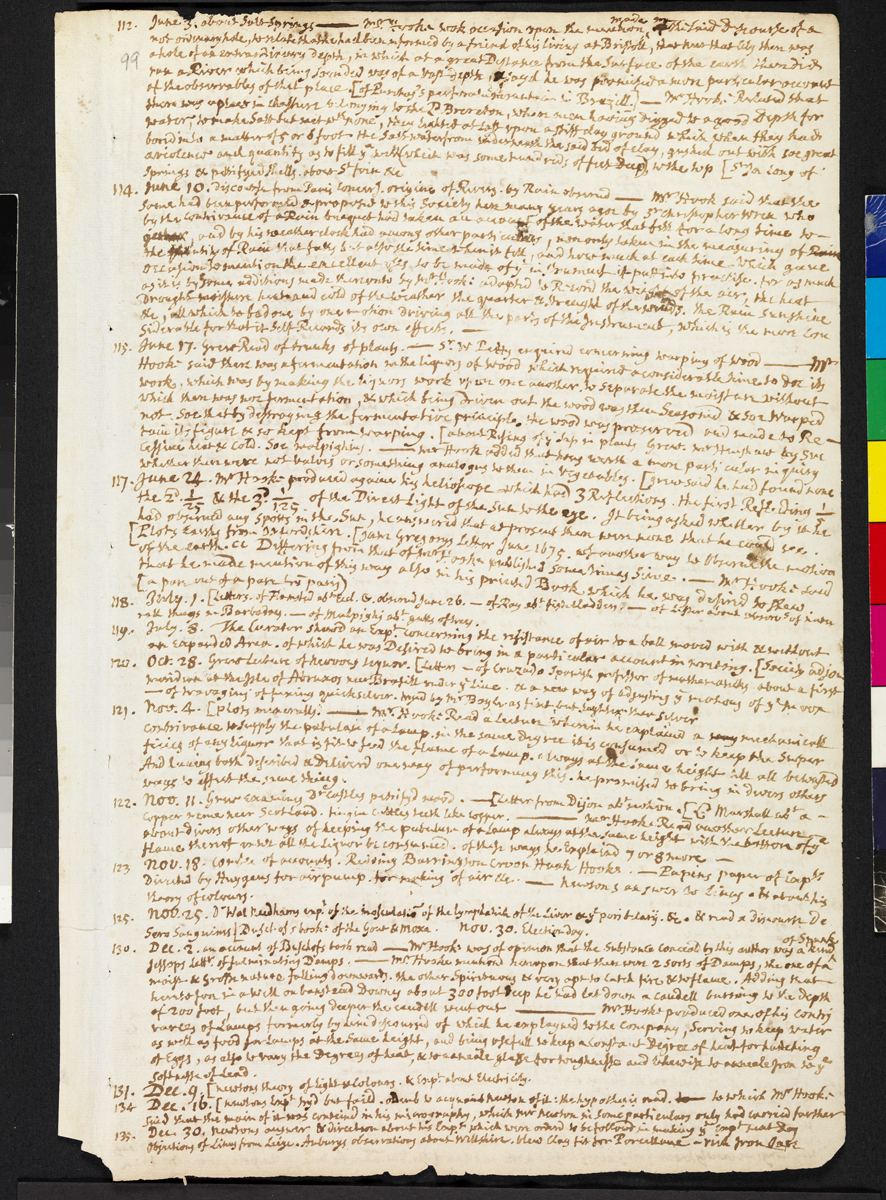 112. June 3. about Salt Springs —— mr. Hooke took occasion upon the mention made in the said discourse of a
99
not ordinary hole, to relate that he had been informed by a friend of his living at Bristoll, that near that City there was
a hole of an extraordinary depth, in which at a great Distance from the Surface of the earth there did
run a River which being sounded was of a vast depth, & sayd he was promised a more particular account
of the observables of that place. [of Purchas's performation in Brazill.] — Mr Hook. Related that
there was a place in Chasshire belonging to the Ld Brereton, where men having digged to a good Depth for
water, to make salt but met wth none, they lighted at last upon a stiff clay ground which when they had
bored into a matter of 5 or 6 foot. the Salt water from underneath the said bed of clay, gushed out with soe great
a violence and quantity as to fill ye well (which was some hundreds of feet Deep) to the top [Sr Jn Long of
Springs & petrifyed Shells. about St &c
114. June 10. Discourse from Paris concern. origine of Rivers. by Rain observd —— Mr Hook said that the
same had been performed & proposed to this Society here many years agoe by Sr Christopher Wren who
by the contrivance of a Rain bucquet had taken an account of the water that fell for a long time to-
gether, and by his weather clock had among other particulars, not only taken in the measuring of Rain
the quantity of Rain that falls, but also the time when it fell, and how much at each time. Which gave
occasion to mention the excellent use to be made of ye instrument if put into practise. for as much
as it is by some additions made thereunto by Mr Hook: adapted to Record the weight of the air, the heat
Drought, moisture heat and cold of the weather the quarter & strength of the winds. the Rain Sunshine
&c, all which to be done by one motion driving all the parts of the Instrument, which is the more Con
siderable for that it self Records its own effects. —
115. June 17. Grew Read of trunks of plants. —— Sr W Petty enquired concerning warping of wood —— Mr
Hook: said there was a fermentation in the liquors of wood which required a considerable time to doe its
work, which was by making the liquors work upon one another, to separate the moisture without
which there was noe fermentation, & which being driven out the wood was then Seasoned & soe warped
not. Soe that by destroying the fermentative principle. the wood was preserved and made to Re-
tain its figure & so kept from warping. [about Rising of ye Sap in plants Grew. mr Henshaw by Suc
cessive heat & cold. Soe malpighius. —— Mr Hook added that twas worth a more particular inquiry
whether there were not valvs or something analogus to them in vegetables. [grew said he had found none
117. June 24. Mr Hook: produced againe his helioscope which had 3 Reflections. the first Reflecting 1/5 the
the 2d. 1/25 & the 3d 1/125. of the Direct Light of the Sun to the eye. It being asked whether by it he
had observed any Spotts in the Sun, he answered that at present there were none that he could see.
[Plots Earths from Oxfordshire. [Jam: Gregorys Letter June 1675. of another way to Observe the motion
of the earth. &c Differing from that of mr Hooke published Some times Since. —— Mr Hook: said
that he made mention of this way also in his printed Book which he was desired to shew
(a part out of a part by Paris)
118. July. 1. [Letters. of Flamsted abt Ecl. & observd June 26. — of Ray abt fish bladders. — of Lister about observs of
rale things in Barbados. — of Malpighy abt galls of trees.
119. July. 8. The Curator shewd an Expt concerning the resistance of air to a ball moved with & without
an Expanded Area. of which he was Desired to bring in a particular account in writing. [Society adjou
120. Oct. 28. Grew Lecture of nervous liquor. [Letters — of Cruzado Spanish professor of mathematicks about a first
meridian at the Isle of near Brasill under ye line. & a new way of adjusting ye motions of ye Moon
— of travaging of fixing quicksilver. tryd by Mr Boyle as first but lighter than Silver
121. Nov. 4. [Plots mineralls. — Mr Hook: Read a Lecture wherin he explained a mechanicall
contrivance to supply the pabulum of a Lamp. in the same degree it is consumed or to keep the Super
ficies of any liquor that is fit to feed the flame of a Lamp. always at the same height till all be wasted
And having both described & delivered one way of performing this. he promised to bring in divers others
ways to effect the same thing.
122. Nov. 11. Grew Examing Dr Castles petrifyd wood. — [Letter from Dijon abt motion. [Ld Marshall abt a-
copper mine neer Scotland. tinging Cattles teeth like Copper. —— Mr Hook: Read another Lecture
about divers other ways of keeping the pabulum of a Lamp always at the same height with the bottom of ye
flame thereof untill all the liquor be consumed. of these ways he Explained 7 or 8 more —
123 Nov. 18. Comtee of accounts. Reiving Barrington Croon Haak Hooke. — Papins paper of Expts
Directed by Huygens for air pump. for making of air &c. — newtons answer to Linus & about his
theory of colours.
125. Nov. 25. Dr Wal. Needhams expt. of the inosculation of the lymphatick of the liver & ye & & read a discourse De
Sero Sanguinis [Busch of 5 books of the Gout & Moxa. Nov. 30. Election day.
130. Dec. 2. an account of Bischofs book read — Mr Hook: was of opinion that the substance conceald by this author was a kind of
Jessops letts. of fulminating Damps. — Mr Hooke mentiond hereupon that there were 2 sorts of Damps, the one of a
moist & grosse nature falling downwards. the other spirituous & very apt to catch fire & to flame. Adding that
heretofore in a well on banstead Downes about 300 foot deep he had let down a caudell burning to the depth
of 200 foot, but then going deeper the caudell went out —— Mr Hook: produced one of his contri
vances of Lamps formerly by him discoursed of which he explayned to the Company, Serving to keep water
as well as food for Lamps at the same height, and being usefull to keep a constant Degree of heat for hatching
of Eggs, as also to vary the Degrees of heat, & to anneale glasse for toughnesse and likewise to anneale Iron to ye
softnesse of Lead.
131. Dec. 9. [newtons theory of light & colours. & Expt about Electricity.
134 Dec. 16. [newtons Expt tryd but faild. ordred to acquaint newton of it: the hypothesis read. — to which Mr Hook:
said that the main of it was contained in his micrography, which Mr newton in some particulars only had carried further
135. Dec. 30. newtons answer & direction about his Expt which were ordred to be followed in making ye Expt next day
Objections of Linus from Liege. Aubrys observations about Wiltshire. blew Clay fit for Porcellane — rich Iron Oare